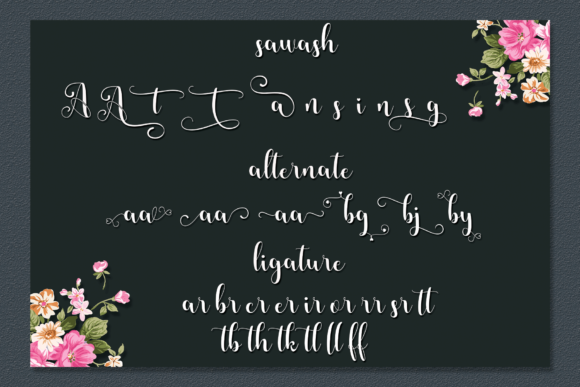 sawash
A A t T a n s i n s g
alternate
aa aa aa bg bj by
ligature
ar br cr er ir or rr sr tt
tb th tk tl ll ff